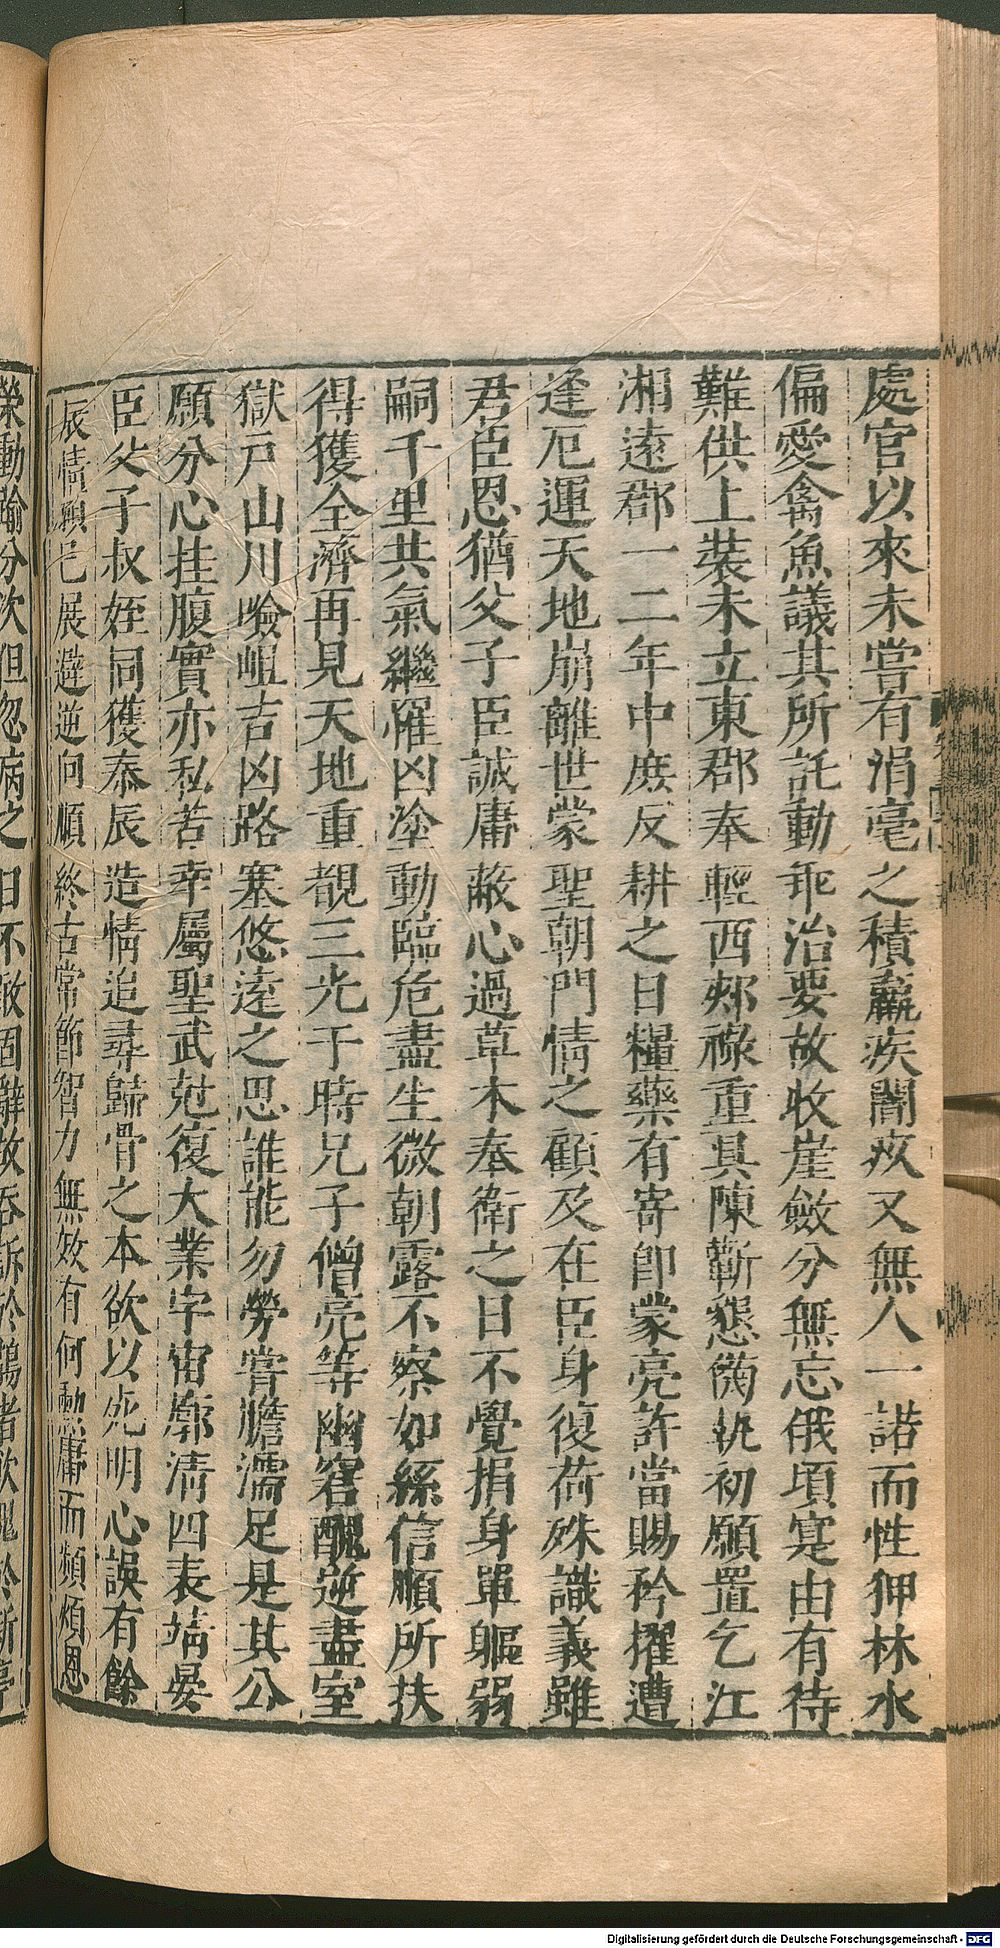 處官以來未嘗有涓毫之積羸疾闇疚又無人一諾而性狎林水
偏愛禽魚議其所託動乖治要故收崖斂分無忘俄頃寔由有待
難供上裝未立東郡奉輕西郊祿重具陳蘄懇備執初願置乞江
湘遠郡一二年中庶反耕之日糧藥有寄卽蒙亮許當賜矜擢遭
逢厄運天地崩離世蒙聖朝門情之顧及在臣身復荷殊識義雖
君臣恩猶父子臣誠庸蔽心過草木奉衛之日不覺捐身單軀弱
嗣千里共氣繼罹凶塗動臨危盡生微朝露不察如絲信順所扶
得獲全濟再見天地重覩三光于時兄子僧亮等幽窘醜逆盡室
獄戸山川嶮岨吉凶路塞悠遠之思誰能勿勞嘗膽濡足是其公
願分心挂腹實亦私苦幸屬聖武尅復大業宇宙廓淸四表靖晏
臣父子叔姪同獲泰辰造情追尋歸骨之本欲以死明心誤有餘
辰情願已展避逆向順終古常節智力無效有何勳庸而頻煩恩
榮動踰分次但忽病之日不敢固辭故吞訴於鵲渚飲愧於新亭
Digitalisierung gefördert durch die Deutsche Forschungsgemeinschaft - DFG